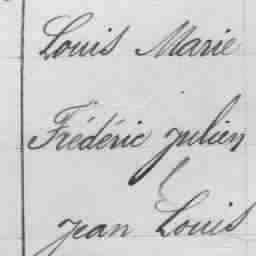 Louis Marie
Frédéric Julien
Jean Louis